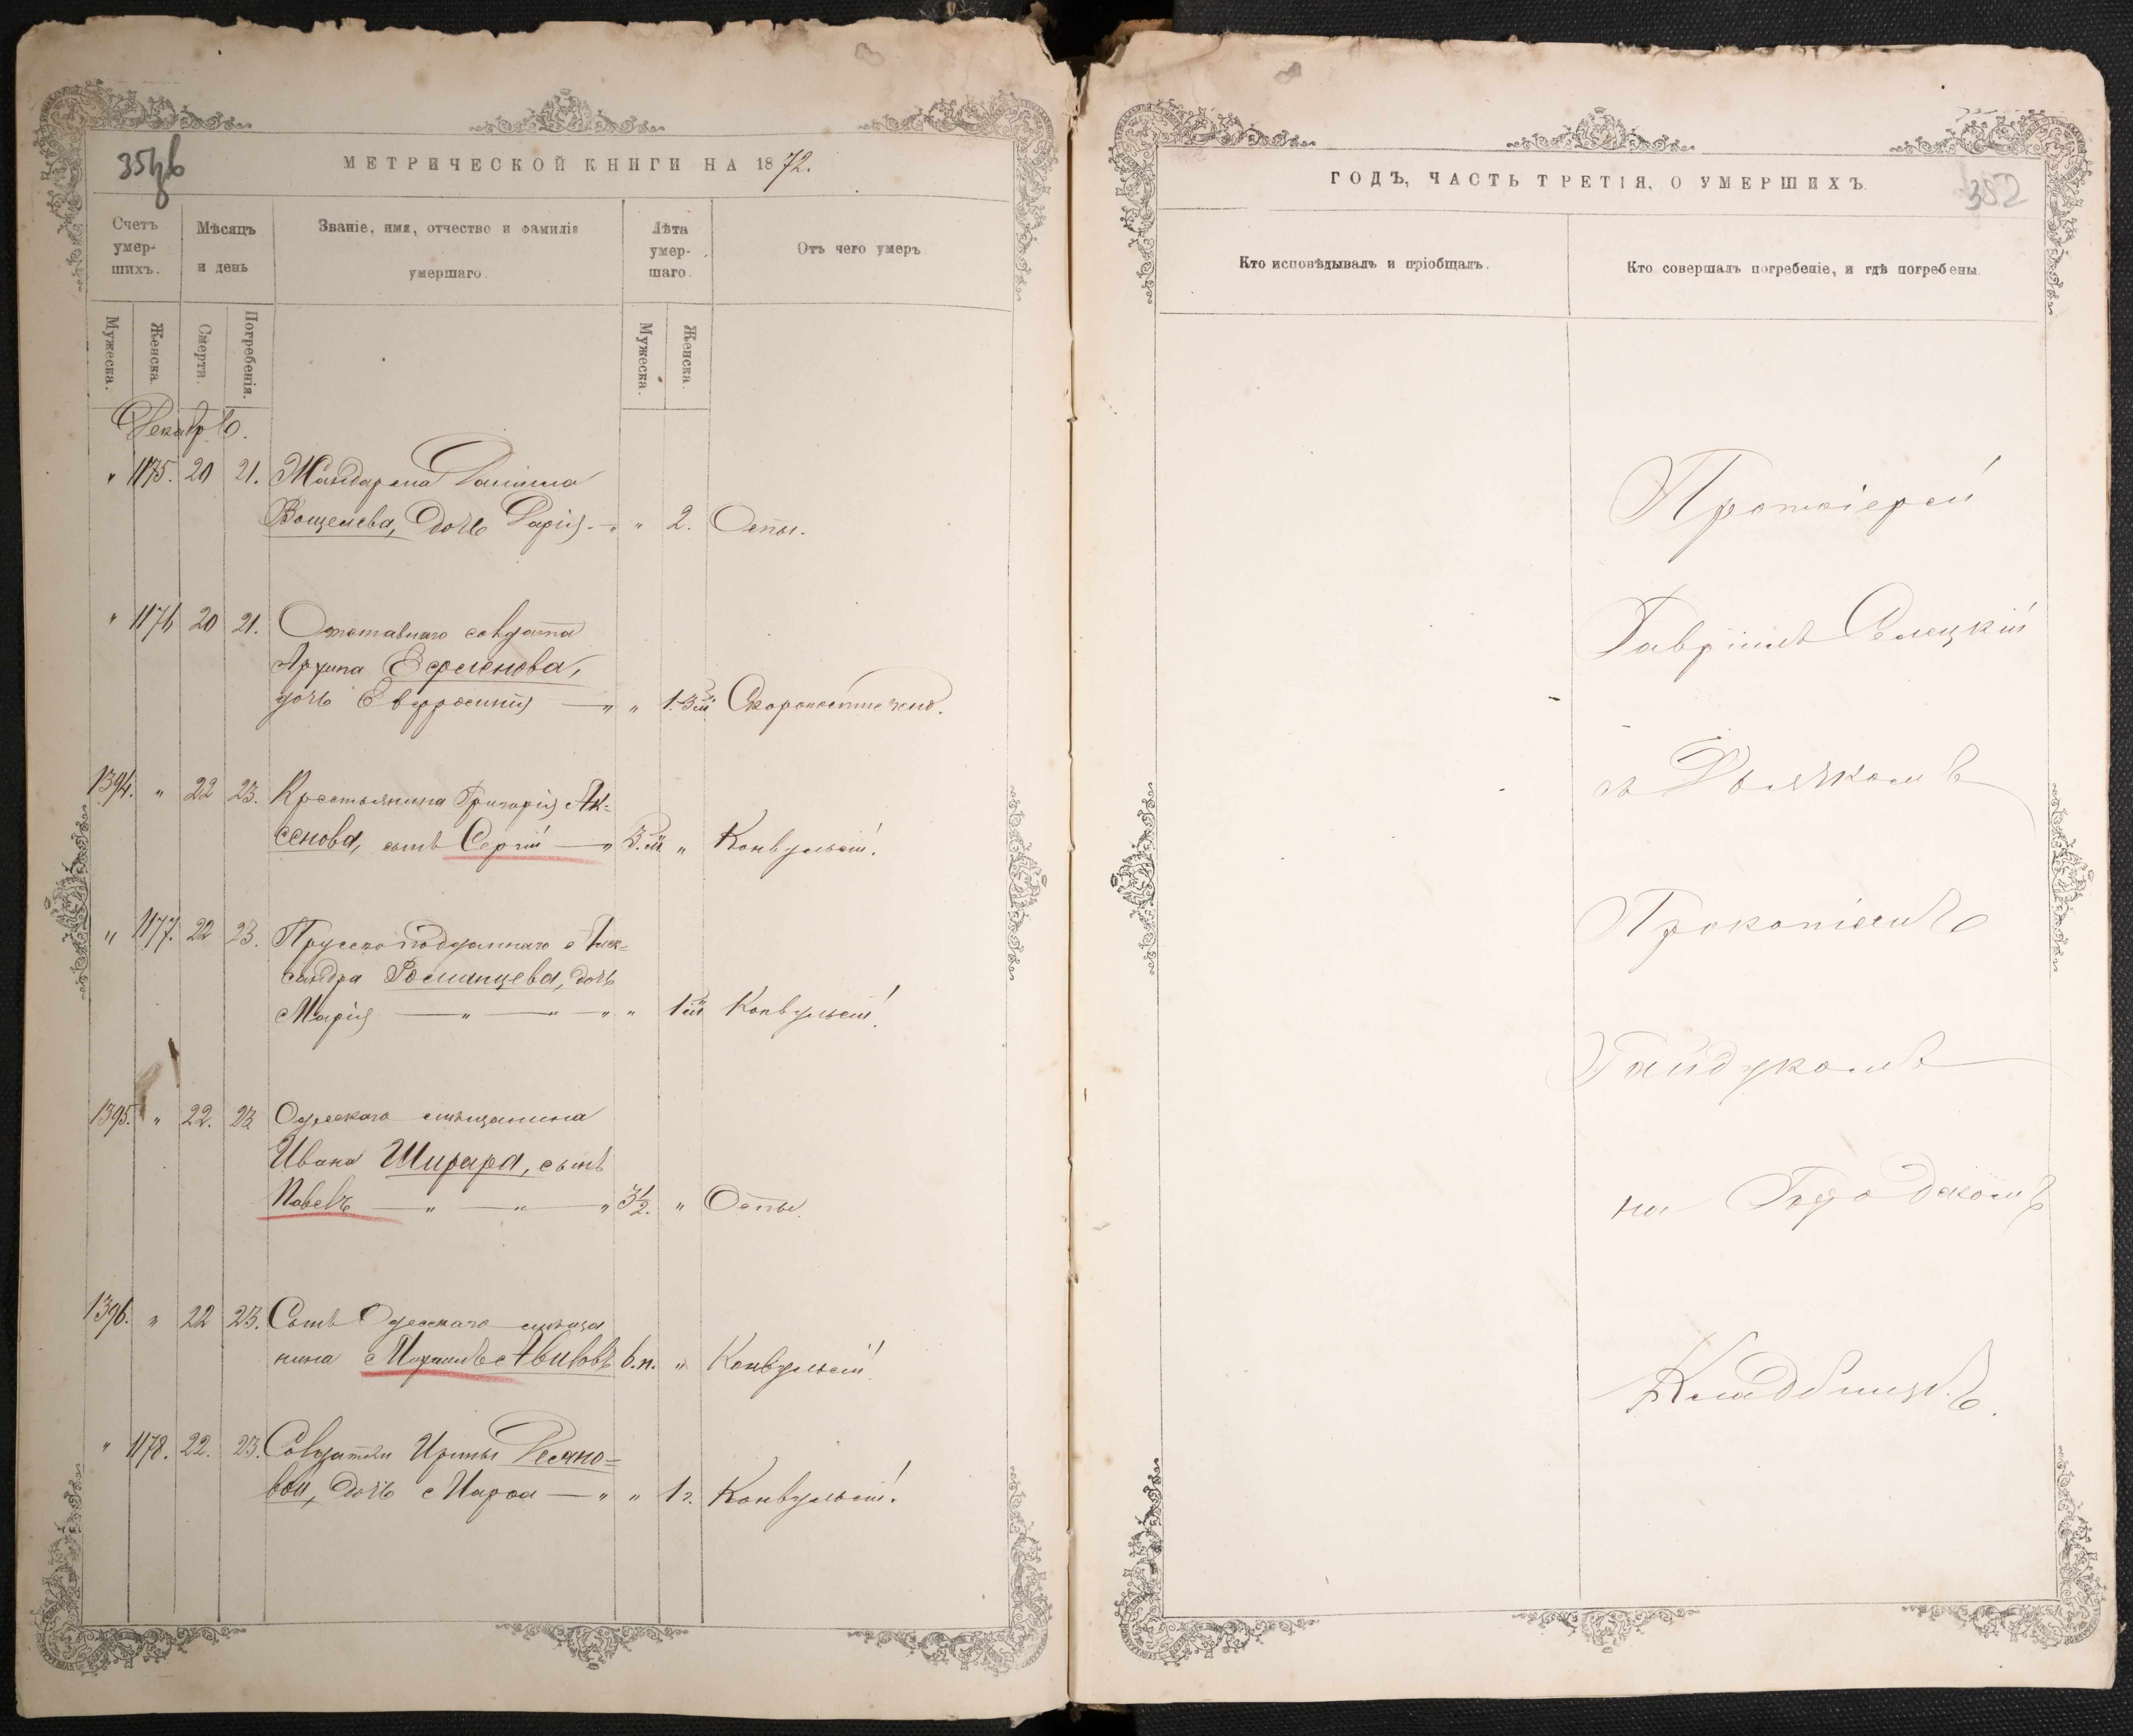 МЕТРИЧЕСКОЙ КНИГИ НА 1872.
Счетъ умершихъ.
Мѣсяцъ и день
Званіе, имя, отчество и фамилія умершаго.
Лѣта умершаго.
Отъ чего умеръ.
Мужеска.
Женска.
Смерти.
Погребенія.
Мужеска.
Женска.
Декабрь.
" 1175. 20 21. Жандарма Даніила
Вощелева, дочь Дарія. — " " 2. Оспы.
" 1176 20 21. Отставнаго солдата
Архипа Ефременова,
дочь Евфросинія — " " Скоропостижно.
1394. " 22 23. Крестьянина Григорія Ак=
сенова, сынъ Сергій — " 3. м. " Конвульсій.
" 1177. 22 23. Прусскоподданнаго Алек=
сандра дочь
Марія — " — " — " " 1 м. Конвульсій.
1395. " 22. 23 Одесскаго мѣщанина
Ивана сынъ
Павелъ — " — " — " 3½. " Оспы.
1396. " 22 23. Сынъ Одесскаго мѣща
нина Михаилъ Авиловъ 6. н. " Конвульсій.
" 1178. 22. 23. Солдатки Ирины
вой, дочь Марѳа — " " 1 г. Конвульсій.
ГОДЪ, ЧАСТЬ ТРЕТІЯ, О УМЕРШИХЪ.
352
Кто исповѣдывалъ и пріобщалъ.
Кто совершалъ погребеніе, и гдѣ погребены.
Протоіерей
Гавріилъ Селецкій
съ Дьячкомъ
Прокопіемъ
Гайдукомъ
на Городскомъ
Кладбищѣ.